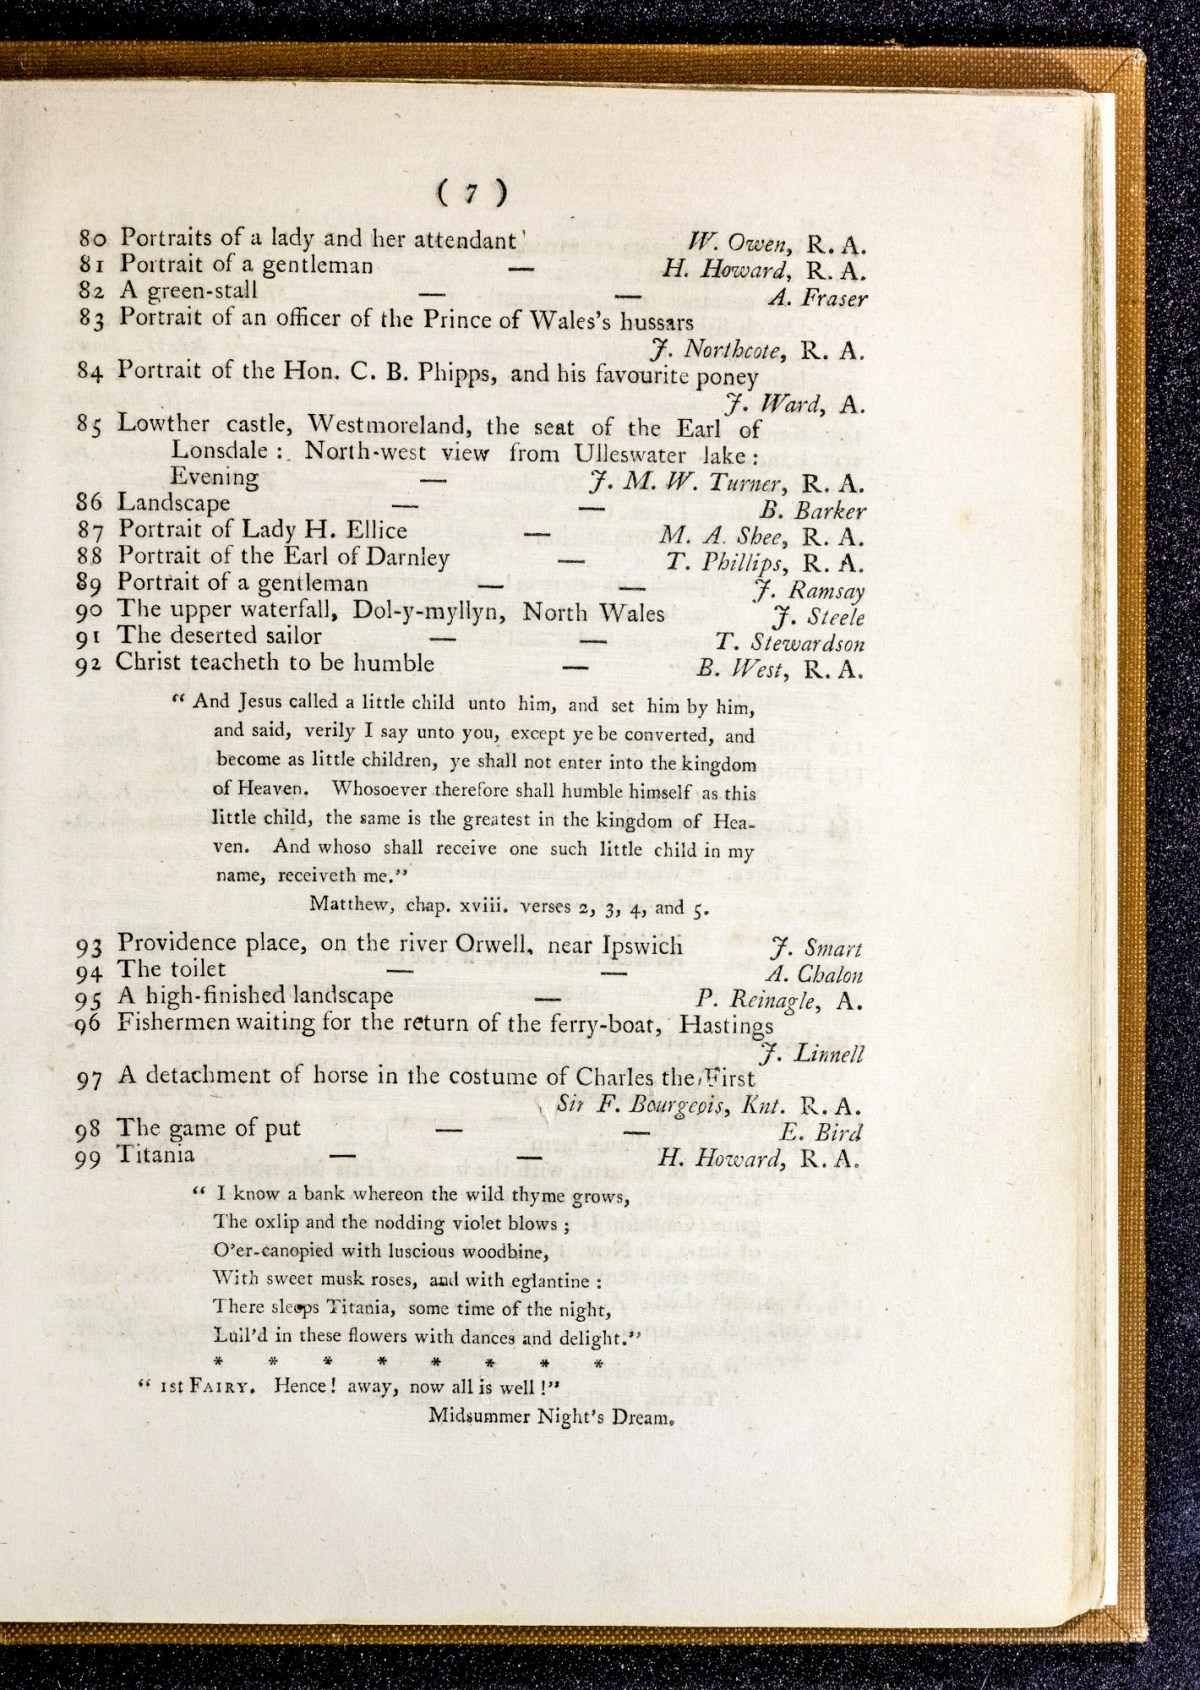 ( 7 )
80 Portraits of a lady and her attendant W. Owen, R. A.
81 Portrait of a gentleman — H. Howard, R. A.
82 A green-stall — — A. Fraser
83 Portrait of an officer of the Prince of Wales's hussars
J. Northcote, R. A.
84 Portrait of the Hon. C. B. Phipps, and his favourite poney
J. Ward, A.
85 Lowther castle, Westmoreland, the seat of the Earl of
Lonsdale : North-west view from Ulleswater lake :
Evening — J. M. W. Turner, R. A.
86 Landscape — — B. Barker
87 Portrait of Lady H. Ellice — M. A. Shee, R. A.
88 Portrait of the Earl of Darnley — T. Phillips, R. A.
89 Portrait of a gentleman — — J. Ramsay
90 The upper waterfall, Dol-y-myllyn, North Wales J. Steele
91 The deserted sailor — — T. Stewardson
92 Christ teacheth to be humble — B. West, R. A.
“ And Jesus called a little child unto him, and set him by him,
and said, verily I say unto you, except ye be converted, and
become as little children, ye shall not enter into the kingdom
of Heaven. Whosoever therefore shall humble himself as this
little child, the same is the greatest in the kingdom of Hea-
ven. And whoso shall receive one such little child in my
name, receiveth me.”
Matthew, chap. xviii. verses 2, 3, 4, and 5.
93 Providence place, on the river Orwell, near Ipswich J. Smart
94 The toilet — — A. Chalon
95 A high-finished landscape — P. Reinagle, A.
96 Fishermen waiting for the return of the ferry-boat, Hastings
J. Linnell
97 A detachment of horse in the costume of Charles the First
Sir F. Bourgeois, Knt. R. A.
98 The game of put — — E. Bird
99 Titania — — H. Howard, R. A.
“ I know a bank whereon the wild thyme grows,
The oxlip and the nodding violet blows ;
O'er-canopied with luscious woodbine,
With sweet musk roses, and with eglantine :
There sleeps Titania, some time of the night,
Lull'd in these flowers with dances and delight.”
* * * * * * * *
“ 1st FAIRY. Hence ! away, now all is well !”
Midsummer Night's Dream.